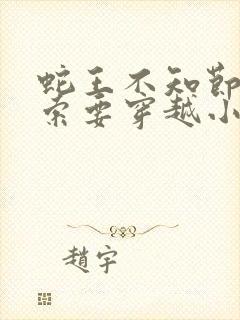 蛇王不知節
索要穿越小
趙宇